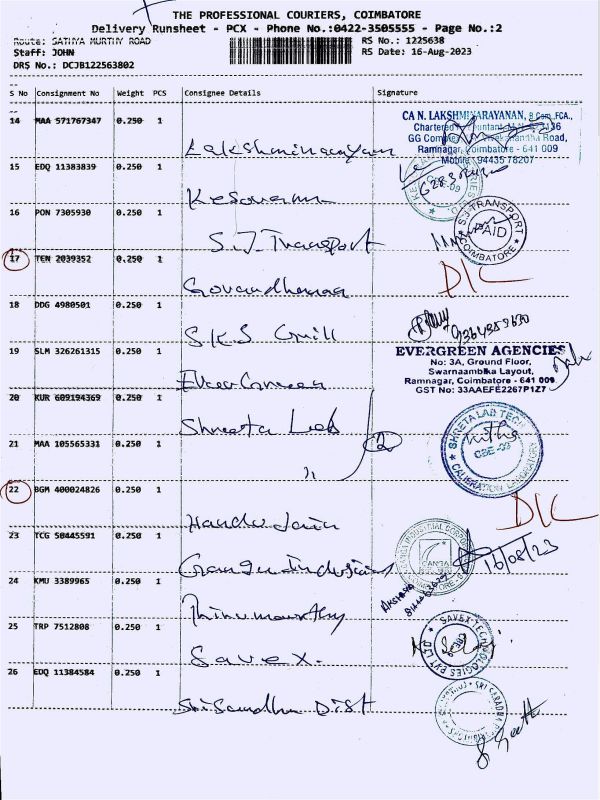 THE PROFESSIONAL COURIERS, COIMBATORE
Delivery Runsheet - PCX - Phone No.:0422-3505555 - Page No.:2
Route: SATHYA MURTHY ROAD
RS No.: 1225638
Staff: JOHN
RS Date: 16-Aug-2023
DRS No.: DCJB122563802
S No Consignment No Weight PCS Consignee Details Signature
14 MAA 571767347 0.250 1 Lakshminarayan
CA N. LAKSHMINARAYANAN, B.Com.,FCA.,
Chartered Accountant
GG Complex Road,
Ramnagar, Coimbatore - 641 009
Mobile: 94435 78207
15 EDQ 11383839 0.250 1 Kesavan
16 PON 7305930 0.250 1 S.J. Transport
S.J. TRANSPORT PAID COIMBATORE
17 TEN 2039352 0.250 1
D/L
18 DDG 4980501 0.250 1 S.K.S Grill
9364359630
19 SLM 326261315 0.250 1 Evergreen
EVERGREEN AGENCIES
No: 3A, Ground Floor,
Swarnaambika Layout,
Ramnagar, Coimbatore - 641 009.
GST No: 33AAEFE2267P1Z7
20 KUR 609194369 0.250 1 Shreeta Lab
2
SHRETA LAB TECH CBE -09 CALIBRATION LABORATORY
21 MAA 105565331 0.250 1 "
22 BGM 400024826 0.250 1 Jain
D/L
23 TCG 50445591 0.250 1 Ganga Industrial
16/08/23
24 KMU 3389965 0.250 1 Thirumoorthy
25 TRP 7512808 0.250 1 Savex.
SAVEX TECHNOLOGIES PVT LTD
26 EDQ 11384584 0.250 1 Sri Saradha Dist